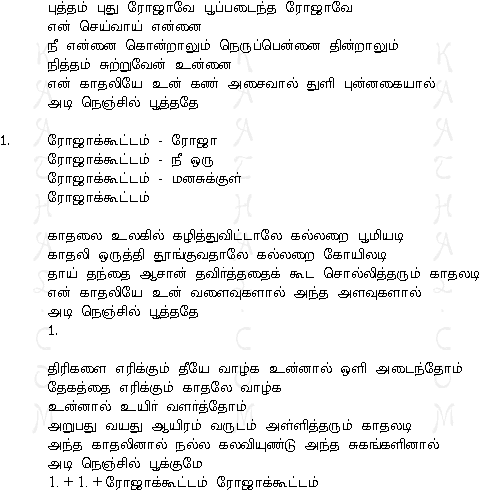 புத்தம் புது ரோஜாவே பூப்படைந்த ரோஜாவே
என் செய்வாய் என்னை
நீ என்னை கொன்றாலும் நெருப்பென்னை தின்றாலும்
நித்தம் சுற்றுவேன் உன்னை
என் காதலியே உன் கண் அசைவால் துளி புன்னகையால்
அடி நெஞ்சில் பூத்ததே
1. ரோஜாக்கூட்டம் - ரோஜா
ரோஜாக்கூட்டம் - நீ ஒரு
ரோஜாக்கூட்டம் - மனசுக்குள்
ரோஜாக்கூட்டம்
காதலை உலகில் கழித்துவிட்டாலே கல்லறை பூமியடி
காதலி ஒருத்தி தூங்குவதாலே கல்லறை கோயிலடி
தாய் தந்தை ஆசான் தவிர்த்ததைக் கூட சொல்லித்தரும் காதலடி
என் காதலியே உன் வளைவுகளால் அந்த அளவுகளால்
அடி நெஞ்சில் பூத்ததே
1.
திரிகளை எரிக்கும் தீயே வாழ்க உன்னால் ஒளி அடைந்தோம்
தேகத்தை எரிக்கும் காதலே வாழ்க
உன்னால் உயிர் வளர்த்தோம்
அறுபது வயது ஆயிரம் வருடம் அள்ளித்தரும் காதலடி
அந்த காதலினால் நல்ல கலவியுண்டு அந்த சுகங்களினால்
அடி நெஞ்சில் பூக்குமே
1. + 1. + ரோஜாக்கூட்டம் ரோஜாக்கூட்டம்